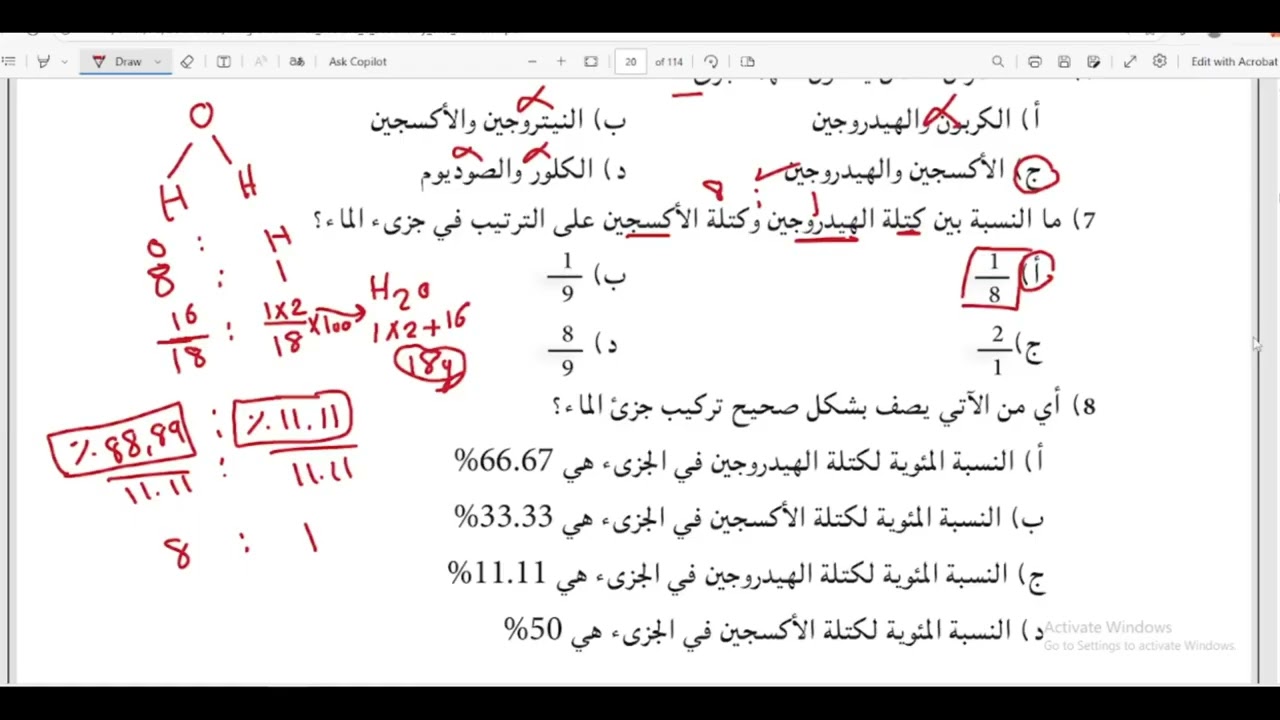 Draw
Ask Copilot
20 of 114
Edit with Acrobat
أ) الكربون والهيدروجين
ب) النيتروجين والأكسجين
ج) الأكسجين والهيدروجين
د) الكلور والصوديوم
7) ما النسبة بين كتلة الهيدروجين وكتلة الأكسجين على الترتيب في جزىء الماء؟
8 : 1
أ) 1/8
ب) 1/9
ج) 2/1
د) 8/9
8) أي من الآتي يصف بشكل صحيح تركيب جزئ الماء؟
أ) النسبة المئوية لكتلة الهيدروجين في الجزىء هي 66.67%
ب) النسبة المئوية لكتلة الأكسجين في الجزىء هي 33.33%
ج) النسبة المئوية لكتلة الهيدروجين في الجزىء هي 11.11%
د) النسبة المئوية لكتلة الأكسجين في الجزىء هي 50%
O
H H
O : H
8 : 1
16/18 : 1x2/18 x100
H2O
1x2+16
18g
٪ 88,89 : ٪ 11.11
11.11 : 11.11
8 : 1
Activate Windows
Go to Settings to activate Windows.